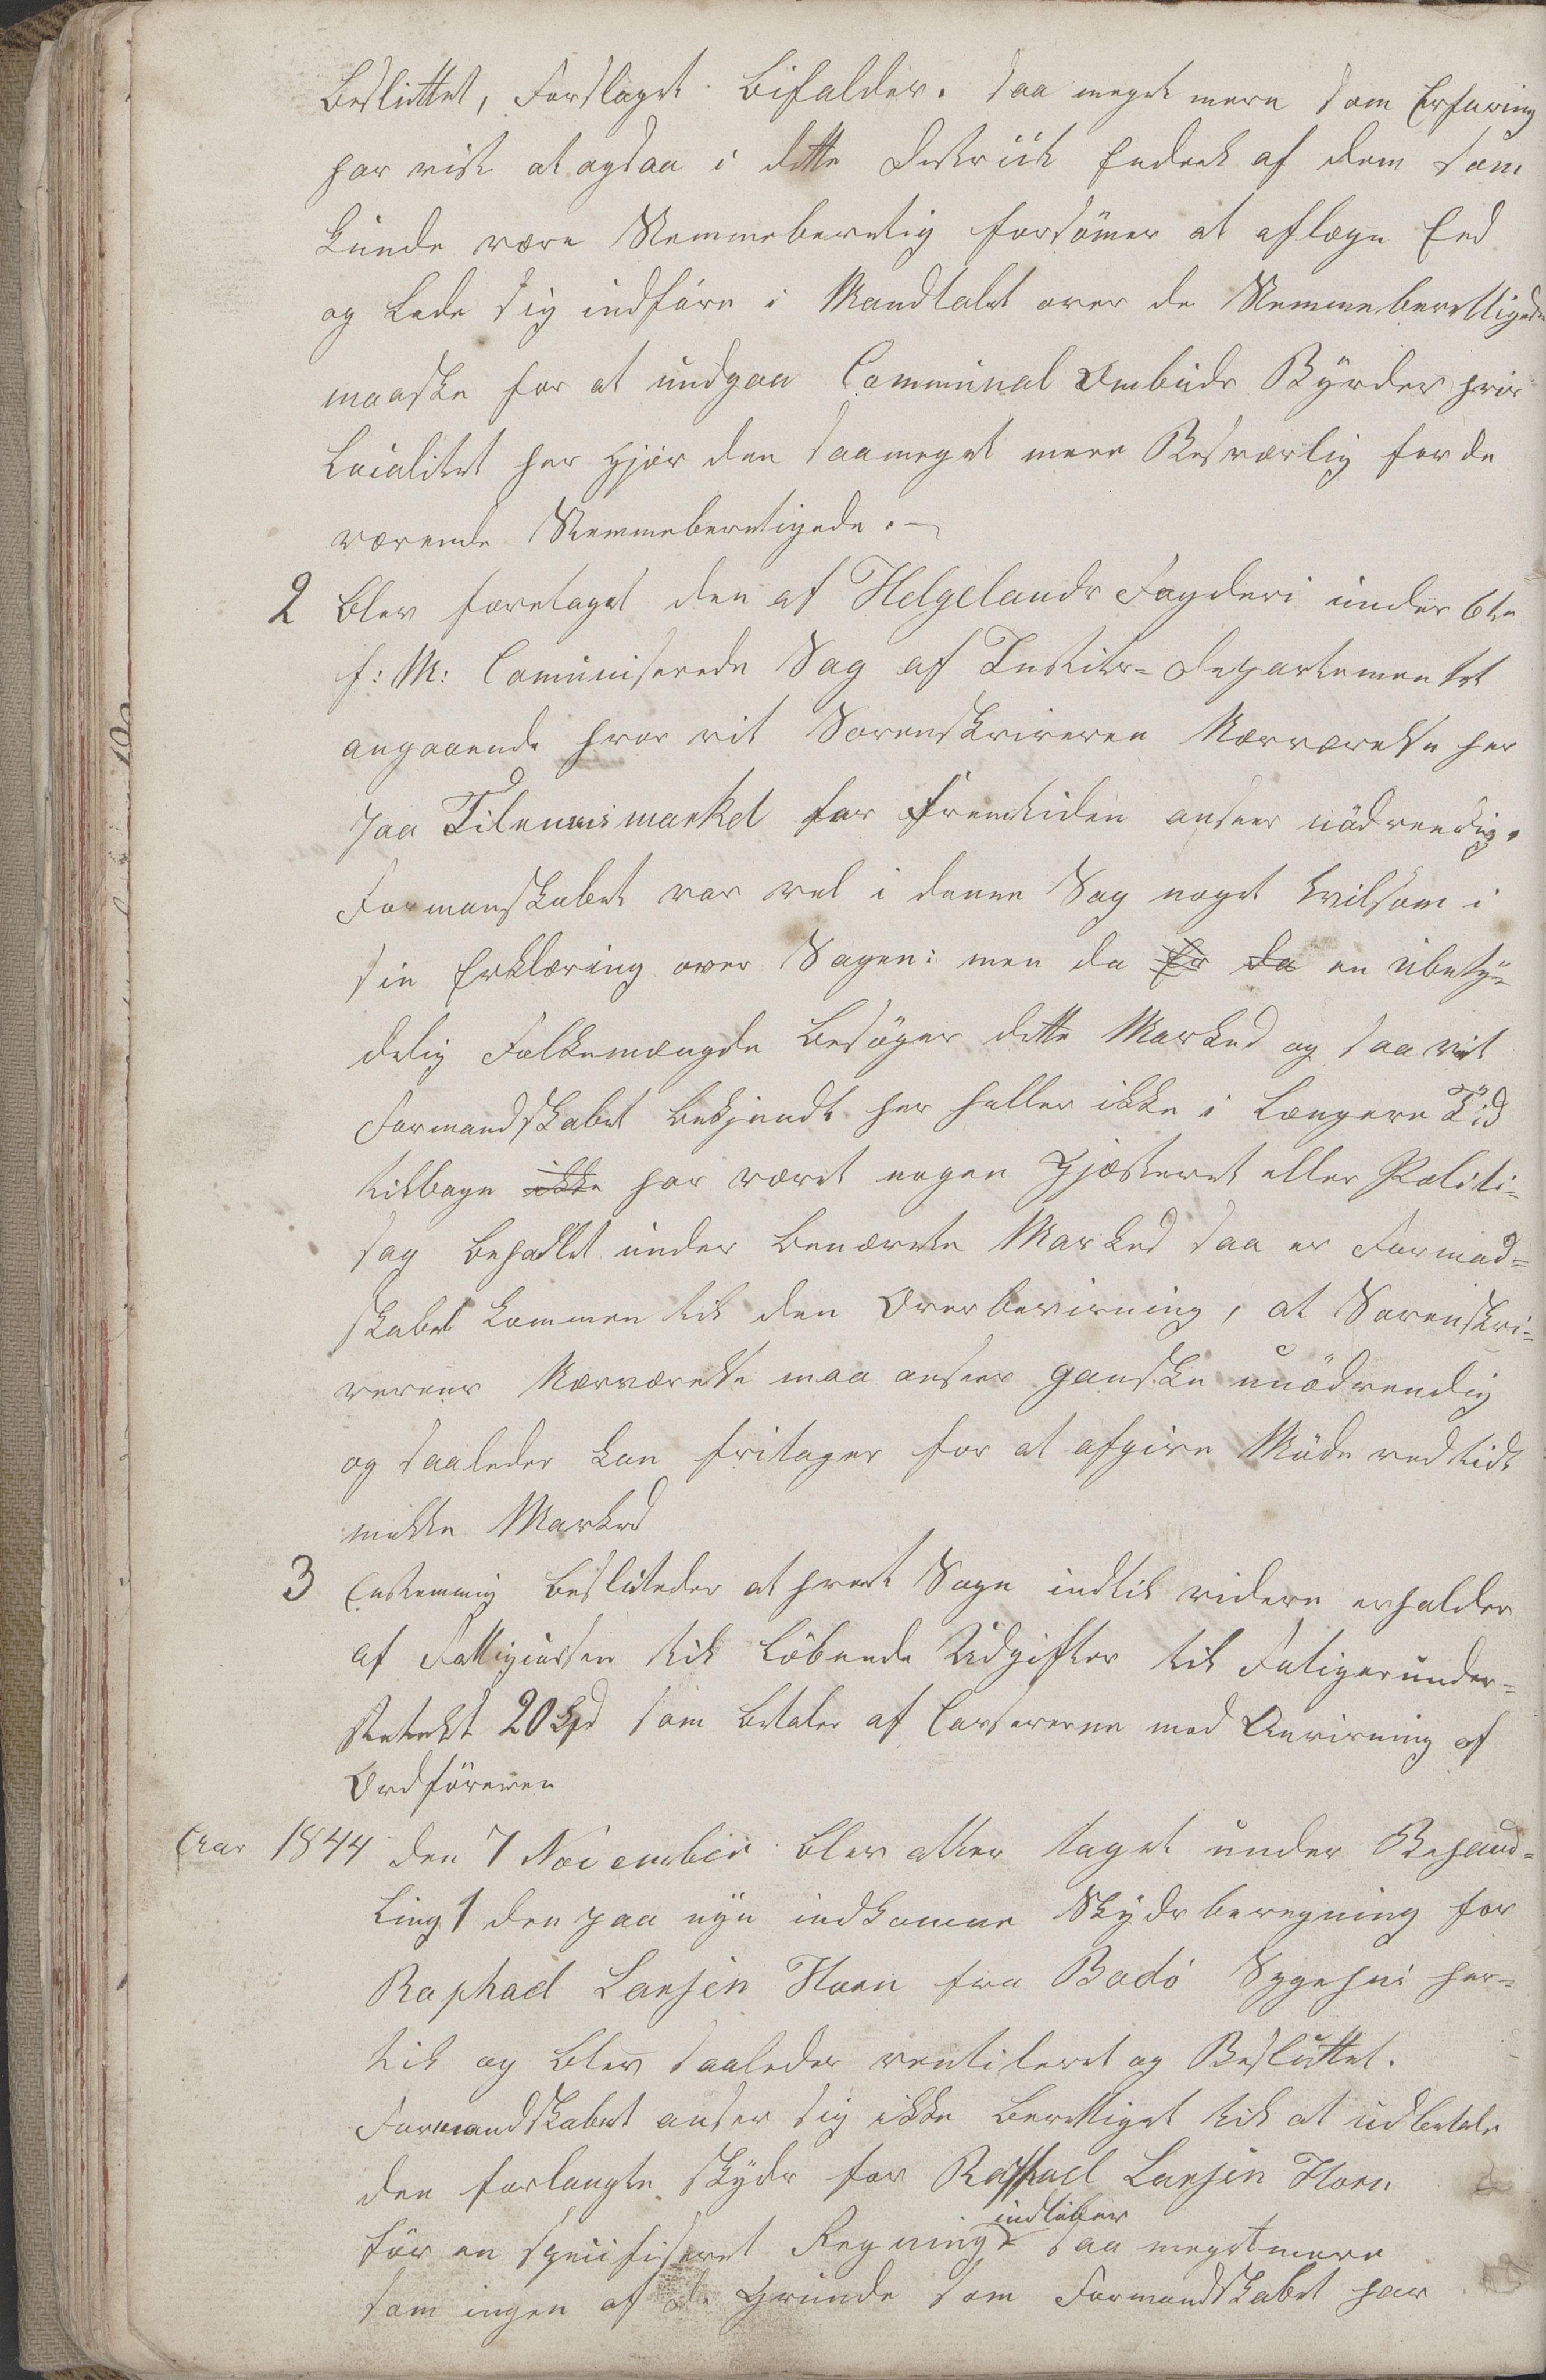 Besluttet, Forslaget bifaldes. saa meget mere som Erfaring
har vist at ogsaa i dette District Endeel af dem som
kunde være Stemmeberetig forsømer at aflægge Eed
og lade sig indføre i Mandtalet over de Stemmeberettigede
maaske for at undgaa Communal Ombuds Byrder hvis
Localitet her gjør den saameget mere Besværlig for de
værende Stemmeberetigede. —
2 Blev foretaget den af Helgelands Fogderi under 6te
f: M: Communiserede Sag af Justits-Departementet
angaaende hvor vit Sorenskriveren Nærværelse her
paa Tilremsmarked for Fremtiden ansees nødvendig.
Formanskabet var vel i denne Sag noget tvilsom i
sin Erklæring over Sagen: men da Er da en ubety-
delig Folkemængde besøger dette Marked og saa vit
Formandskabet bekjendt her heller ikke i længere Tid
tilbage ikke har været nogen Gjæsteret eller Politi-
sag behadlet under benævnte Marked saa er Formad-
skabet kommen til den Overbevisning, at Sorenskri-
verens Nærværelse maa ansees ganske unødvendig
og saaledes kan fritages for at afgive Møde ved tidt
meldte Marked
3 Enstemmig besluttedes at hvert Sogn indtil videre erholder
af Fattigcassen til løbende Udgifter til Fatiges under-
støttelse 20 Spd som betales af Cassererne mod Anvisning af
Ordføreren
Aar 1844 den 7 November blev atter taget under Behand-
ling 1 den paa nye indkomne Skydsberegning for
Raphael Larsen Horn fra Bodø Sygehus her-
til og blev saaledes ventileret og Besluttet.
Formandskabet anser sig ikke berettiget til at udbetale
den forlangte skyds for Raphael Larsen Horn
før en specifiseret Regning indløber saa megetmere
som ingen af de Grunde som Formandskabet har